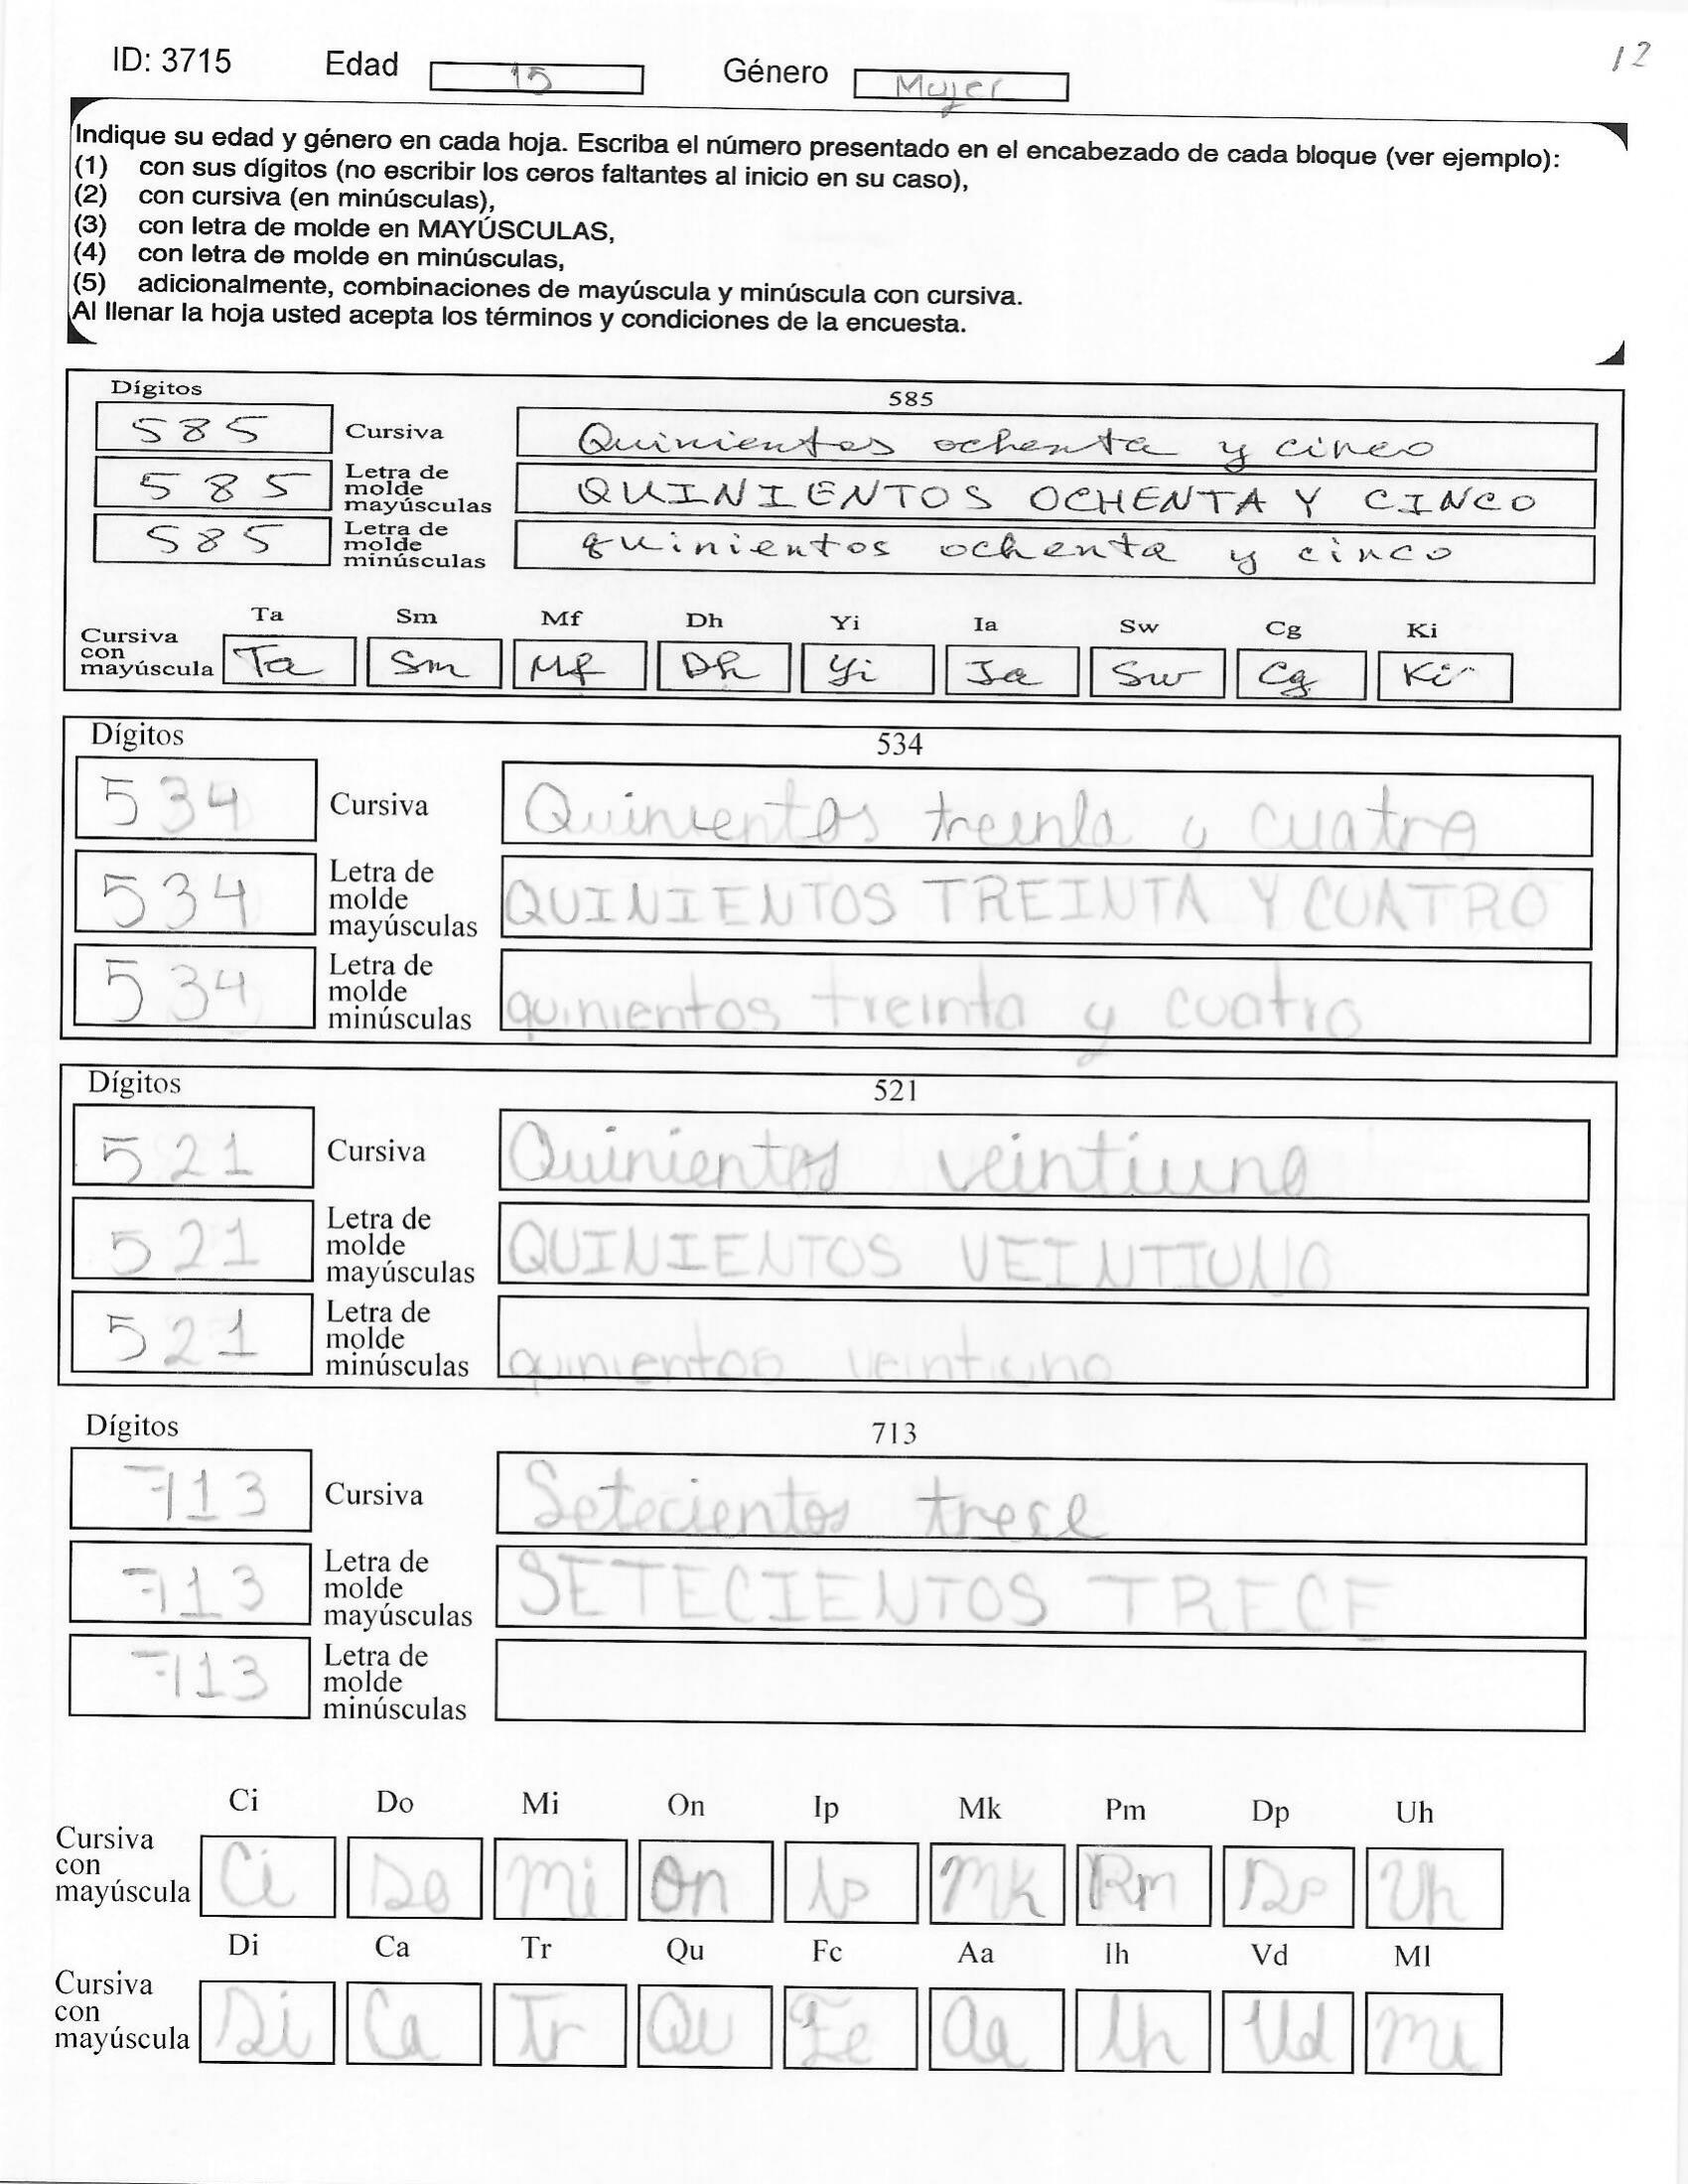 ID: 3715 Edad 15 Género Mujer 12
Indique su edad y género en cada hoja. Escriba el número presentado en el encabezado de cada bloque (ver ejemplo):
(1) con sus dígitos (no escribir los ceros faltantes al inicio en su caso),
(2) con cursiva (en minúsculas),
(3) con letra de molde en MAYÚSCULAS,
(4) con letra de molde en minúsculas,
(5) adicionalmente, combinaciones de mayúscula y minúscula con cursiva.
Al llenar la hoja usted acepta los términos y condiciones de la encuesta.
Dígitos 585
585 Cursiva Quinientos ochenta y cinco
585 Letra de molde mayúsculas QUINIENTOS OCHENTA Y CINCO
585 Letra de molde minúsculas quinientos ochenta y cinco
Ta Sm Mf Dh Yi Ia Sw Cg Ki
Cursiva con mayúscula Ta Sm Mf Dh Yi Ia Sw Cg Ki
Dígitos 534
534 Cursiva Quinientos treinta y cuatro
534 Letra de molde mayúsculas QUINIENTOS TREINTA Y CUATRO
534 Letra de molde minúsculas quinientos treinta y cuatro
Dígitos 521
521 Cursiva Quinientos veintiuno
521 Letra de molde mayúsculas QUINIENTOS VEINTIUNO
521 Letra de molde minúsculas quinientos veintiuno
Dígitos 713
713 Cursiva Setecientos trese
713 Letra de molde mayúsculas SETECIENTOS TRECE
713 Letra de molde minúsculas
Ci Do Mi On Ip Mk Pm Dp Uh
Cursiva con mayúscula Ci Do Mi On Ip Mk Pm Dp Uh
Di Ca Tr Qu Fc Aa Ih Vd Ml
Cursiva con mayúscula Di Ca Tr Qu Fe Aa Ih Vd Ml